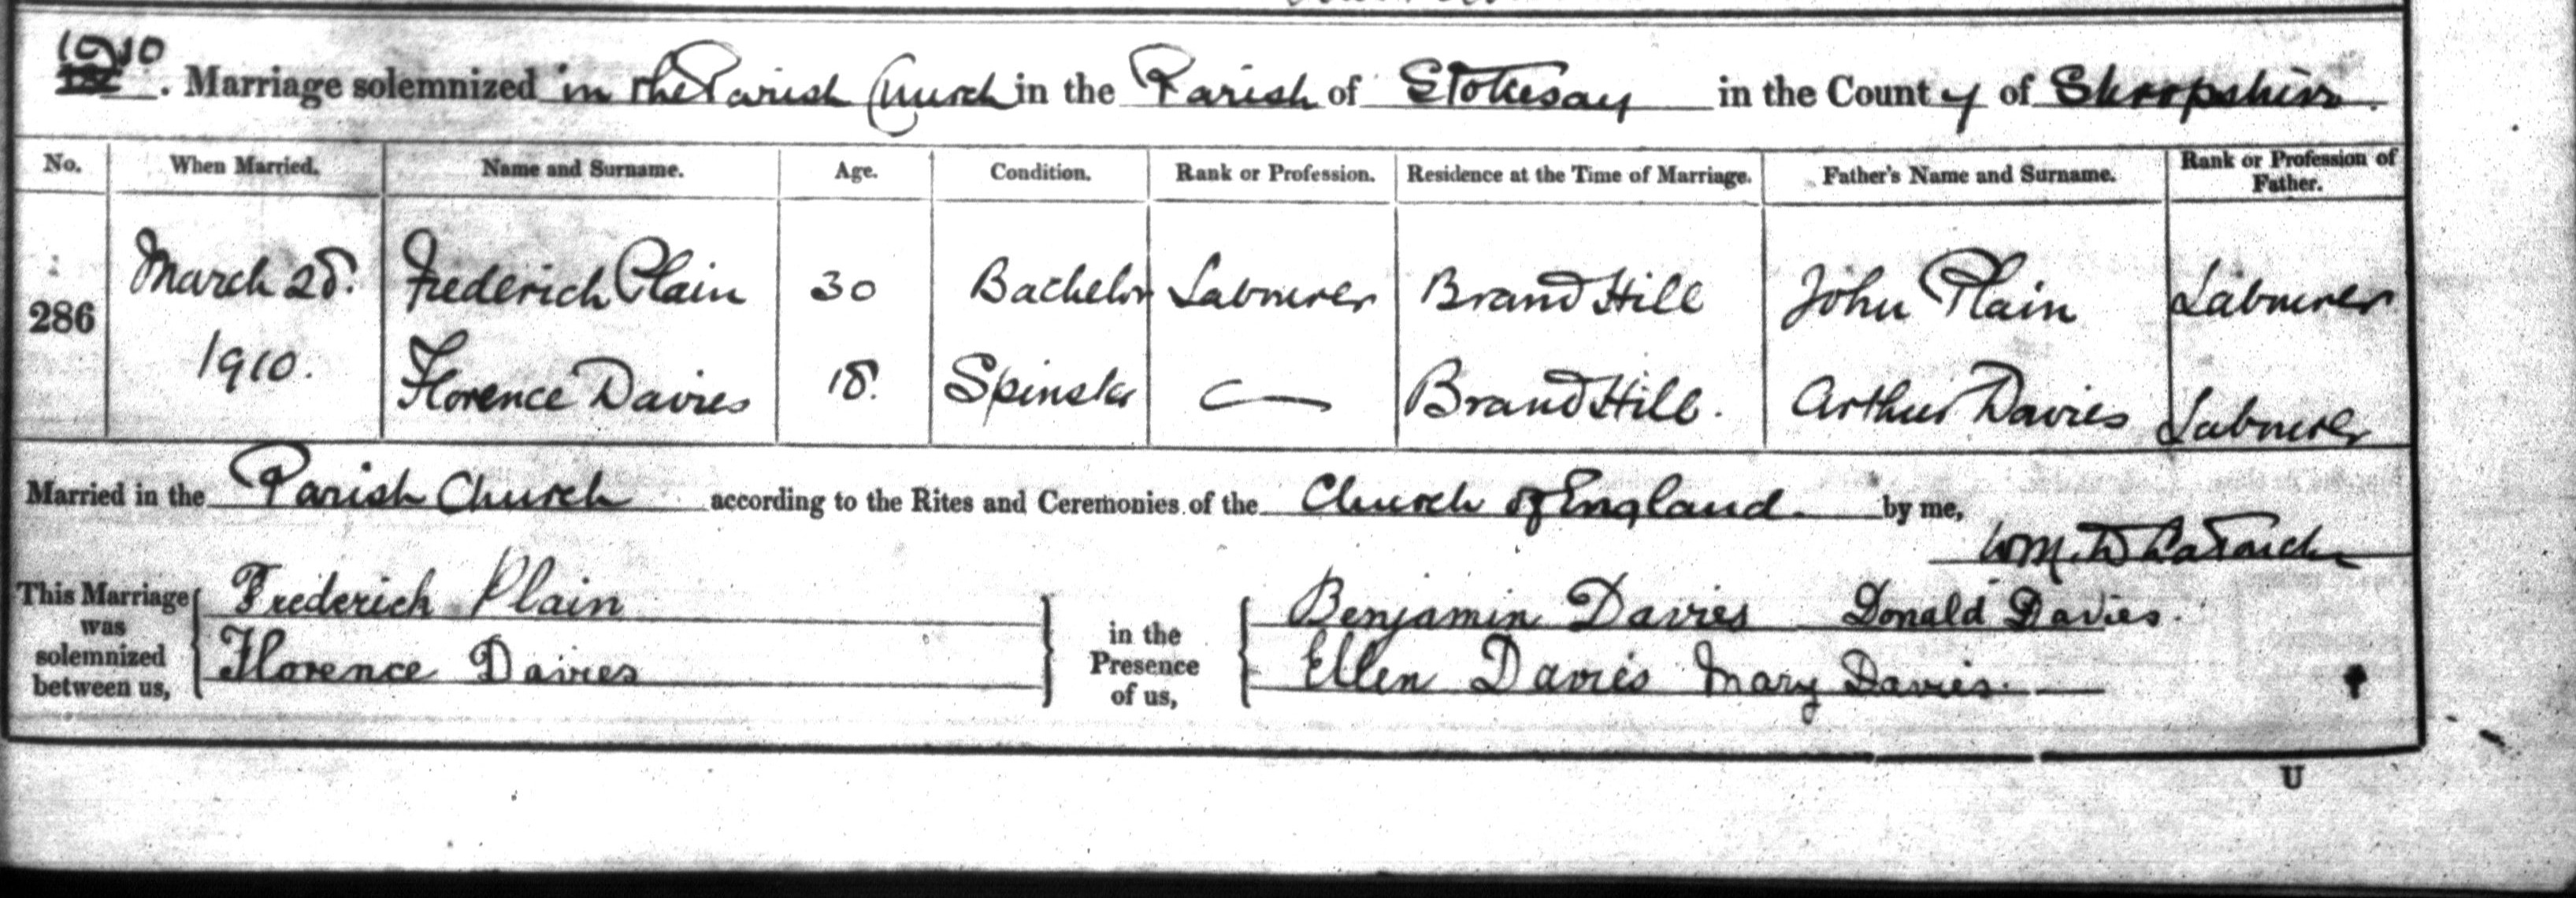 1910. Marriage solemnized in the Parish Church in the Parish of Stokesay in the County of Shropshire.
No. When Married. Name and Surname. Age. Condition. Rank or Profession. Residence at the Time of Marriage. Father's Name and Surname. Rank or Profession of Father.
286 March 28. 1910. Frederick Plain 30 Bachelor Labourer Brand Hill John Plain Labourer
Florence Davies 18. Spinster — Brand Hill. Arthur Davies Labourer
Married in the Parish Church according to the Rites and Ceremonies of the Church of England by me,
Wm. D
This Marriage was solemnized between us, Frederick Plain in the Presence of us, Benjamin Davies Donald Davies.
Florence Davies Ellen Davies Mary Davies.
U